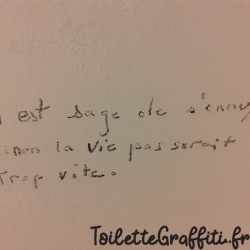 est sage de s'ennuy
inon la vie passerait
Trop vite.
ToiletteGraffiti.fr